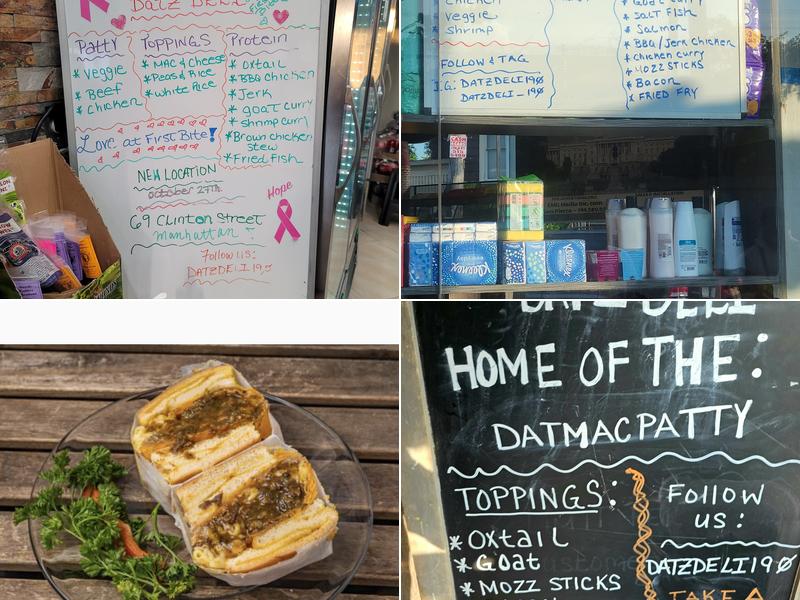 DATZ DELI
Patty
* Veggie
* Beef
* Chicken
TOPPINGS
* MAC & Cheese
* Peas & Rice
* White Rice
Protein
* oxtail
* BBQ Chicken
* Jerk
* goat curry
* shrimp curry
* Brown chicken
stew
* Fried Fish
Love at First Bite!
NEW LOCATION
October 27th
69 Clinton Street
Manhattan
Follow us:
DATZDELI 19
Hope
Veggie
* shrimp
FOLLOW & TAG
I.G: DATZDELI 190
DATZDELI_190
* Goat curry
* SALT FISH
* Salmon
* BBQ/Jerk Chicken
* chicken curry
* MOZZ STICKS
* Bacon
* FRIED FRY
Kleenex
DELI
HOME OF THE:
DATMACPATTY
TOPPINGS:
* Oxtail
* Goat
* MOZZ STICKS
Follow
us:
DATZDELI190
TAKE A